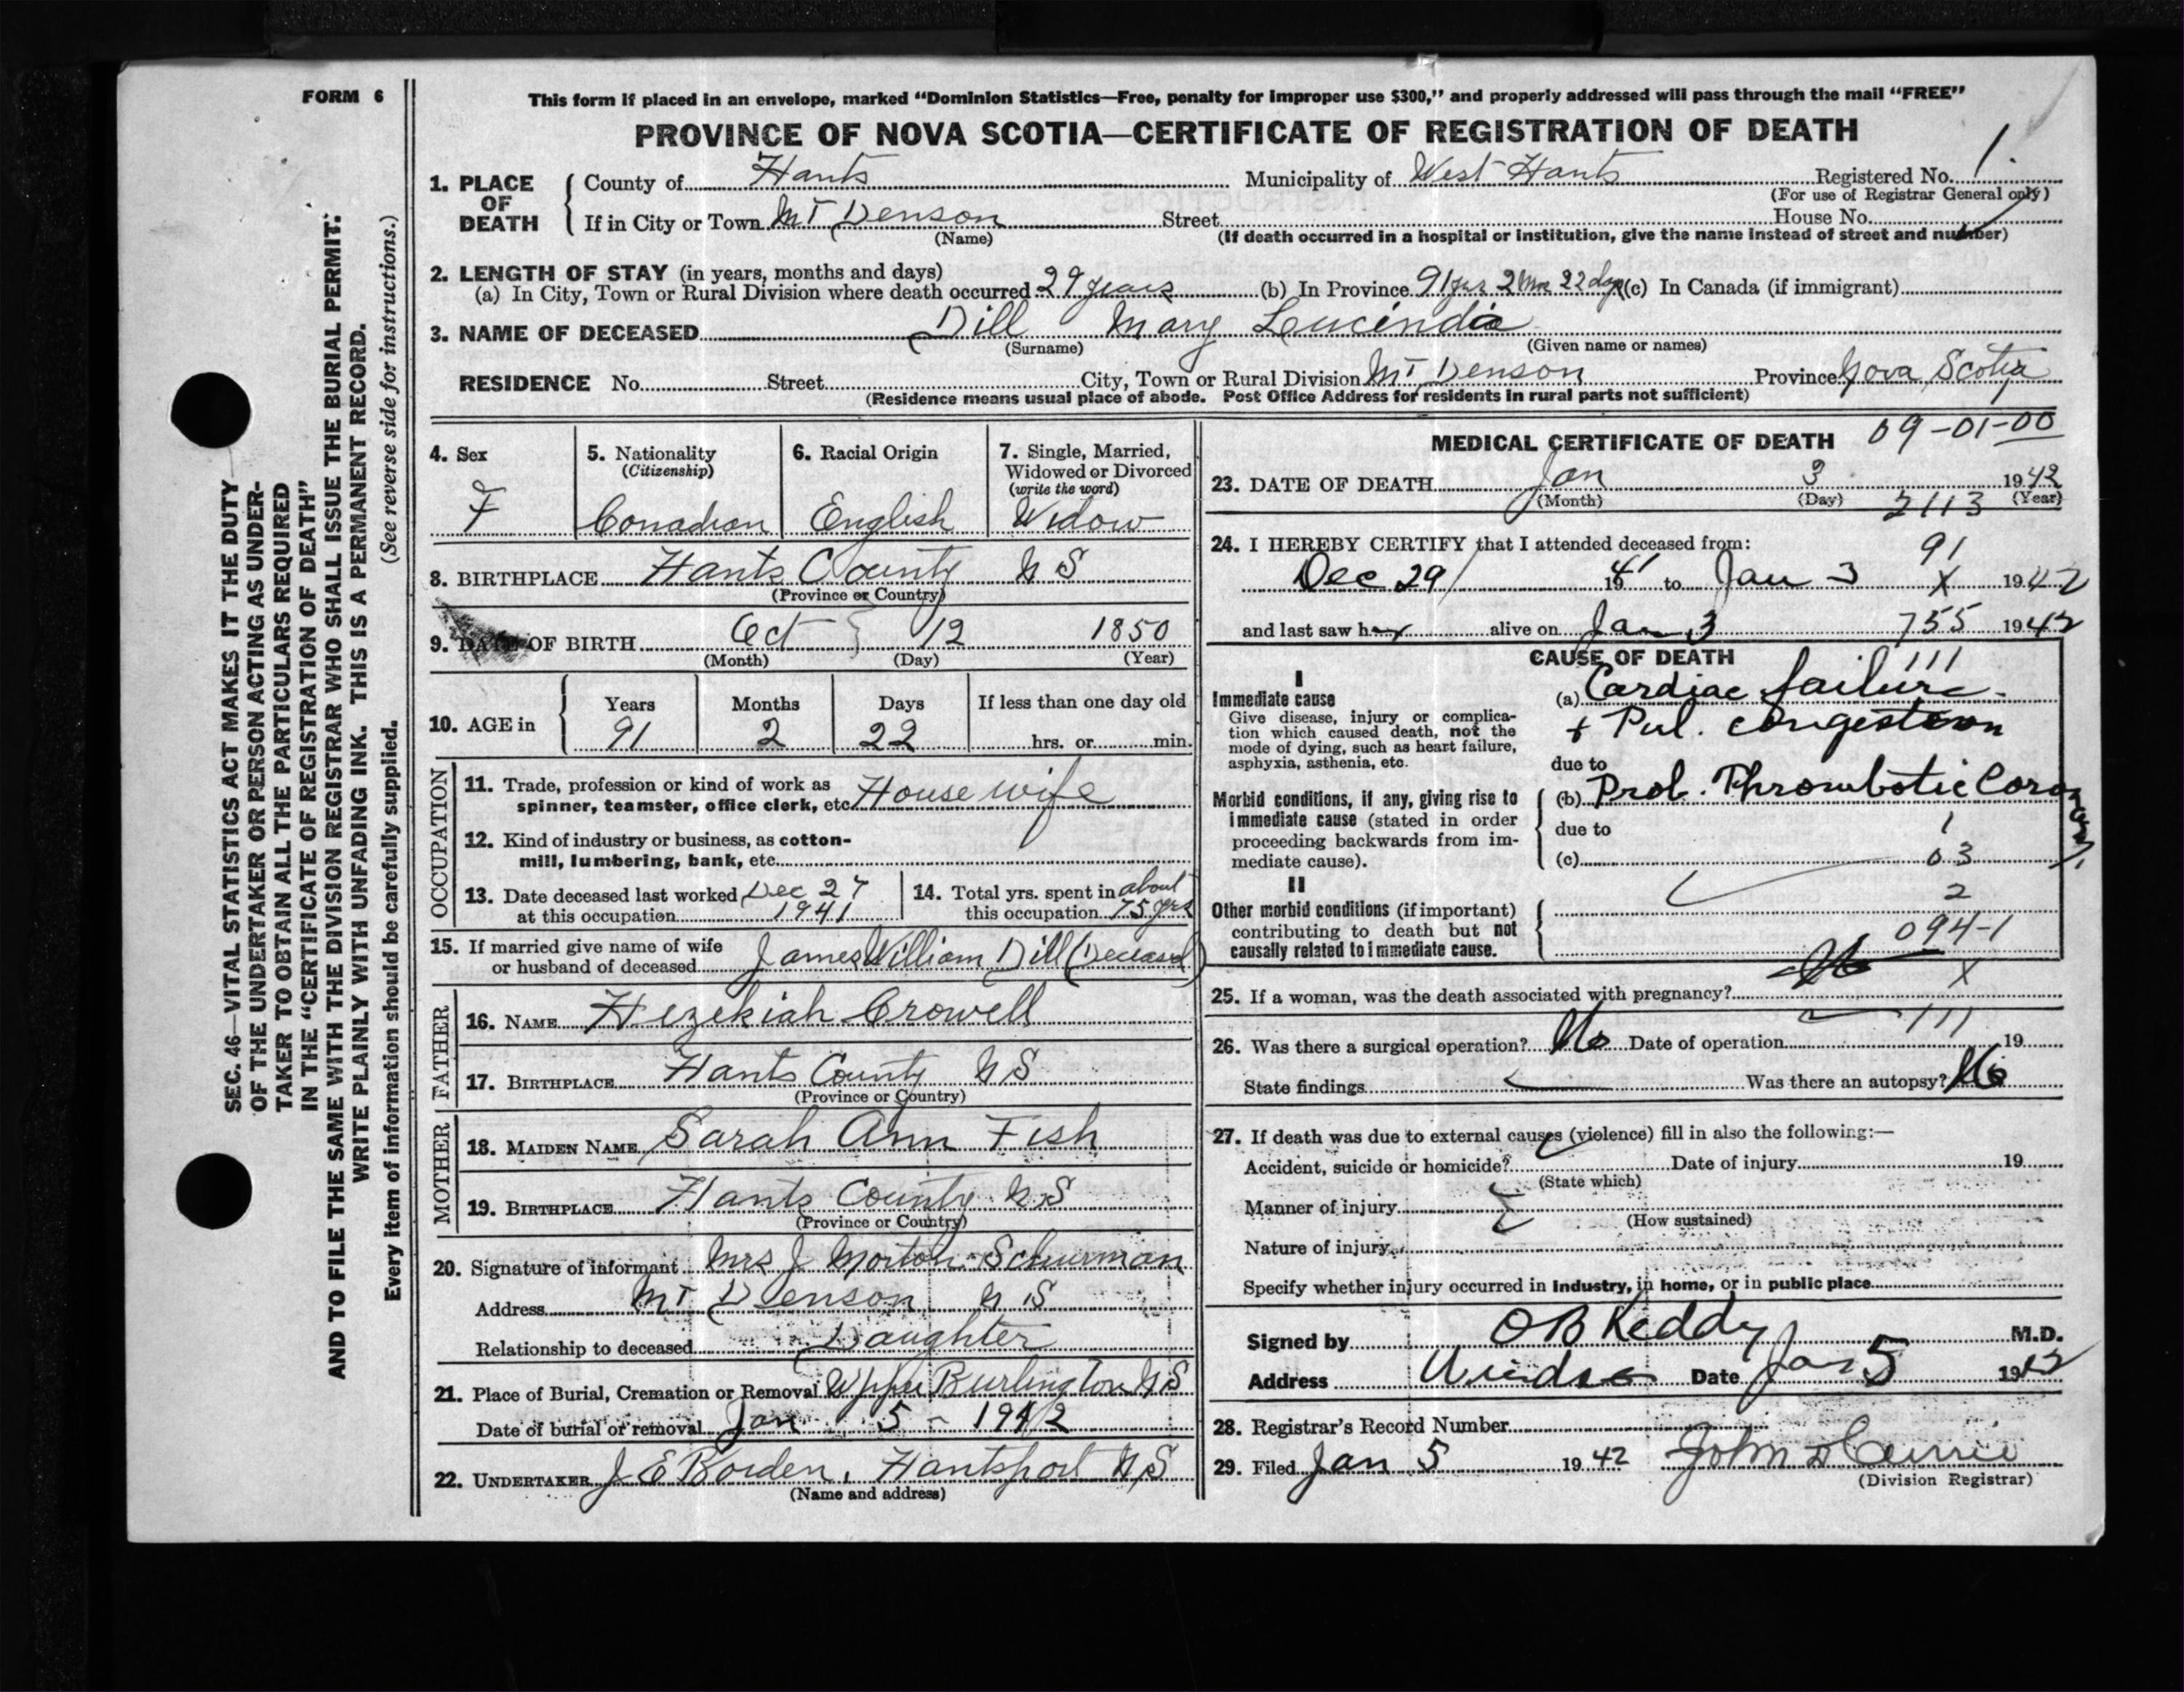 FORM 6
This form if placed in an envelope, marked "Dominion Statistics—Free, penalty for improper use $300," and properly addressed will pass through the mail "FREE"
PROVINCE OF NOVA SCOTIA—CERTIFICATE OF REGISTRATION OF DEATH
SEC. 46—VITAL STATISTICS ACT MAKES IT THE DUTY
OF THE UNDERTAKER OR PERSON ACTING AS UNDER-
TAKER TO OBTAIN ALL THE PARTICULARS REQUIRED
IN THE "CERTIFICATE OF REGISTRATION OF DEATH"
AND TO FILE THE SAME WITH THE DIVISION REGISTRAR WHO SHALL ISSUE THE BURIAL PERMIT.
WRITE PLAINLY WITH UNFADING INK. THIS IS A PERMANENT RECORD.
(See reverse side for instructions.)
Every item of information should be carefully supplied.
1. PLACE OF DEATH
County of Hants Municipality of West Hants Registered No. 1
(For use of Registrar General only)
If in City or Town Mt Denson Street House No.
(Name) (If death occurred in a hospital or institution, give the name instead of street and number)
2. LENGTH OF STAY (in years, months and days)
(a) In City, Town or Rural Division where death occurred 29 years (b) In Province 91 yrs 2 Mos 22 dys (c) In Canada (if immigrant)
3. NAME OF DECEASED Dill Mary Leucinda
(Surname) (Given name or names)
RESIDENCE No. Street City, Town or Rural Division Mt Denson Province Nova Scotia
(Residence means usual place of abode. Post Office Address for residents in rural parts not sufficient)
4. Sex
F
5. Nationality
(Citizenship)
Canadian
6. Racial Origin
English
7. Single, Married,
Widowed or Divorced
(write the word)
Widow
8. BIRTHPLACE Hants County N S
(Province or Country)
9. DATE OF BIRTH Oct 12 1850
(Month) (Day) (Year)
10. AGE in
Years Months Days If less than one day old
91 2 22 hrs. or min.
OCCUPATION
11. Trade, profession or kind of work as
spinner, teamster, office clerk, etc. House wife
12. Kind of industry or business, as cotton-
mill, lumbering, bank, etc.
13. Date deceased last worked Dec 27
at this occupation 1941
14. Total yrs. spent in about
this occupation 75 yrs
15. If married give name of wife
or husband of deceased James William Dill (Deceased)
FATHER
16. NAME Hezekiah Crowell
17. BIRTHPLACE Hants County N S
(Province or Country)
MOTHER
18. MAIDEN NAME Sarah Ann Fish
19. BIRTHPLACE Hants County N S
(Province or Country)
20. Signature of informant Mrs J Morton Schurman
Address Mt Denson N S
Relationship to deceased Daughter
21. Place of Burial, Cremation or Removal Upper Burlington N S
Date of burial or removal Jan 5 - 1942
22. UNDERTAKER J E Borden, Hantsport N S
(Name and address)
MEDICAL CERTIFICATE OF DEATH 09-01-00
23. DATE OF DEATH Jan 3 1942
(Month) (Day) (Year)
2113
24. I HEREBY CERTIFY that I attended deceased from:
91
Dec 29 1941 to Jan 3 X 1942
and last saw her alive on Jan 3 755 1942
CAUSE OF DEATH
111
I
Immediate cause
Give disease, injury or complica-
tion which caused death, not the
mode of dying, such as heart failure,
asphyxia, asthenia, etc.
(a) Cardiac failure
+ Pul. congestion
due to
Morbid conditions, if any, giving rise to
immediate cause (stated in order
proceeding backwards from im-
mediate cause).
(b) Prob. Thrombotic Coronary
due to 1
(c) 03
II
2
Other morbid conditions (if important)
contributing to death but not
causally related to immediate cause.
094-1
25. If a woman, was the death associated with pregnancy? No X
111
26. Was there a surgical operation? No Date of operation 19
State findings Was there an autopsy? No
27. If death was due to external causes (violence) fill in also the following:—
Accident, suicide or homicide? Date of injury 19
(State which)
Manner of injury
(How sustained)
Nature of injury
Specify whether injury occurred in industry, in home, or in public place
Signed by O B Keddy M.D.
Address Windsor Date Jan 5 1942
28. Registrar's Record Number
29. Filed Jan 5 1942 John D Currie
(Division Registrar)